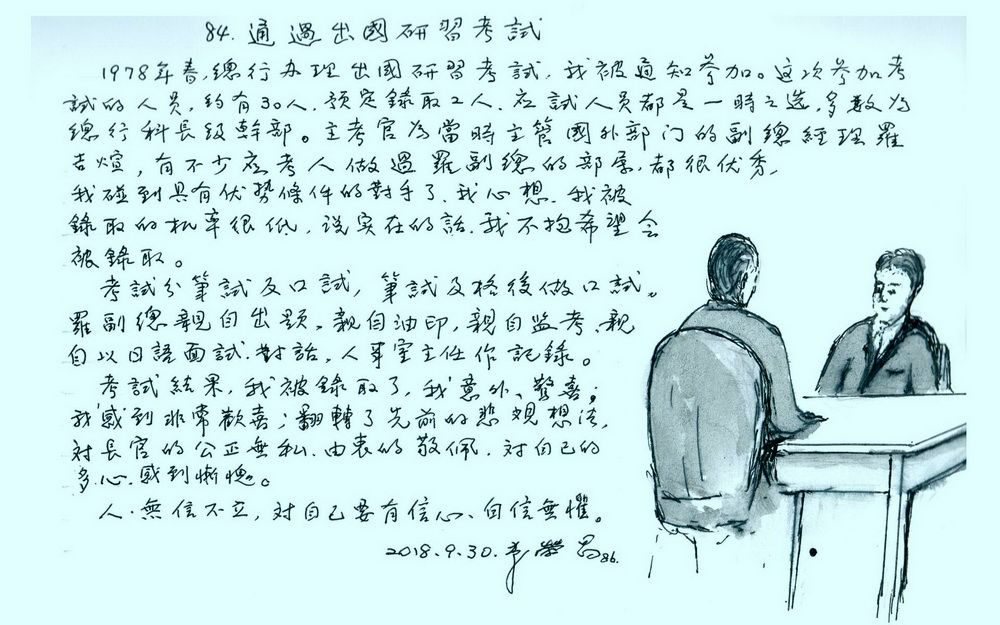 84. 通過出國研習考試
1978年春,總行办理出國研習考試,我被通知參加。这次參加考
試的人員,約有30人.預定錄取2人.应試人员都是一時之选,多數为
總行科長級幹部。主考官为當時主管國外部门的副總經理羅
吉煊,有不少应考人做過羅副總的部属,都很优秀,
我碰到具有优势條件的對手了.我心想.我被
錄取的机率很低,说实在的話.我不抱希望会
被錄取。
考試分筆試及口試,筆試及格後做口試。
羅副總親自出題、親自油印,親自监考、親
自以日語面試.對話,人事室主任作記錄。
考試結果,我被錄取了,我意外、驚喜;
我感到非常歡喜;翻轉了先前的悲观想法,
対長官的公正無私.由衷的敬佩.対自己的
多心.感到慚愧。
人.無信不立,対自己要有信心、自信無懼。
2018.9.30.李榮昌86.